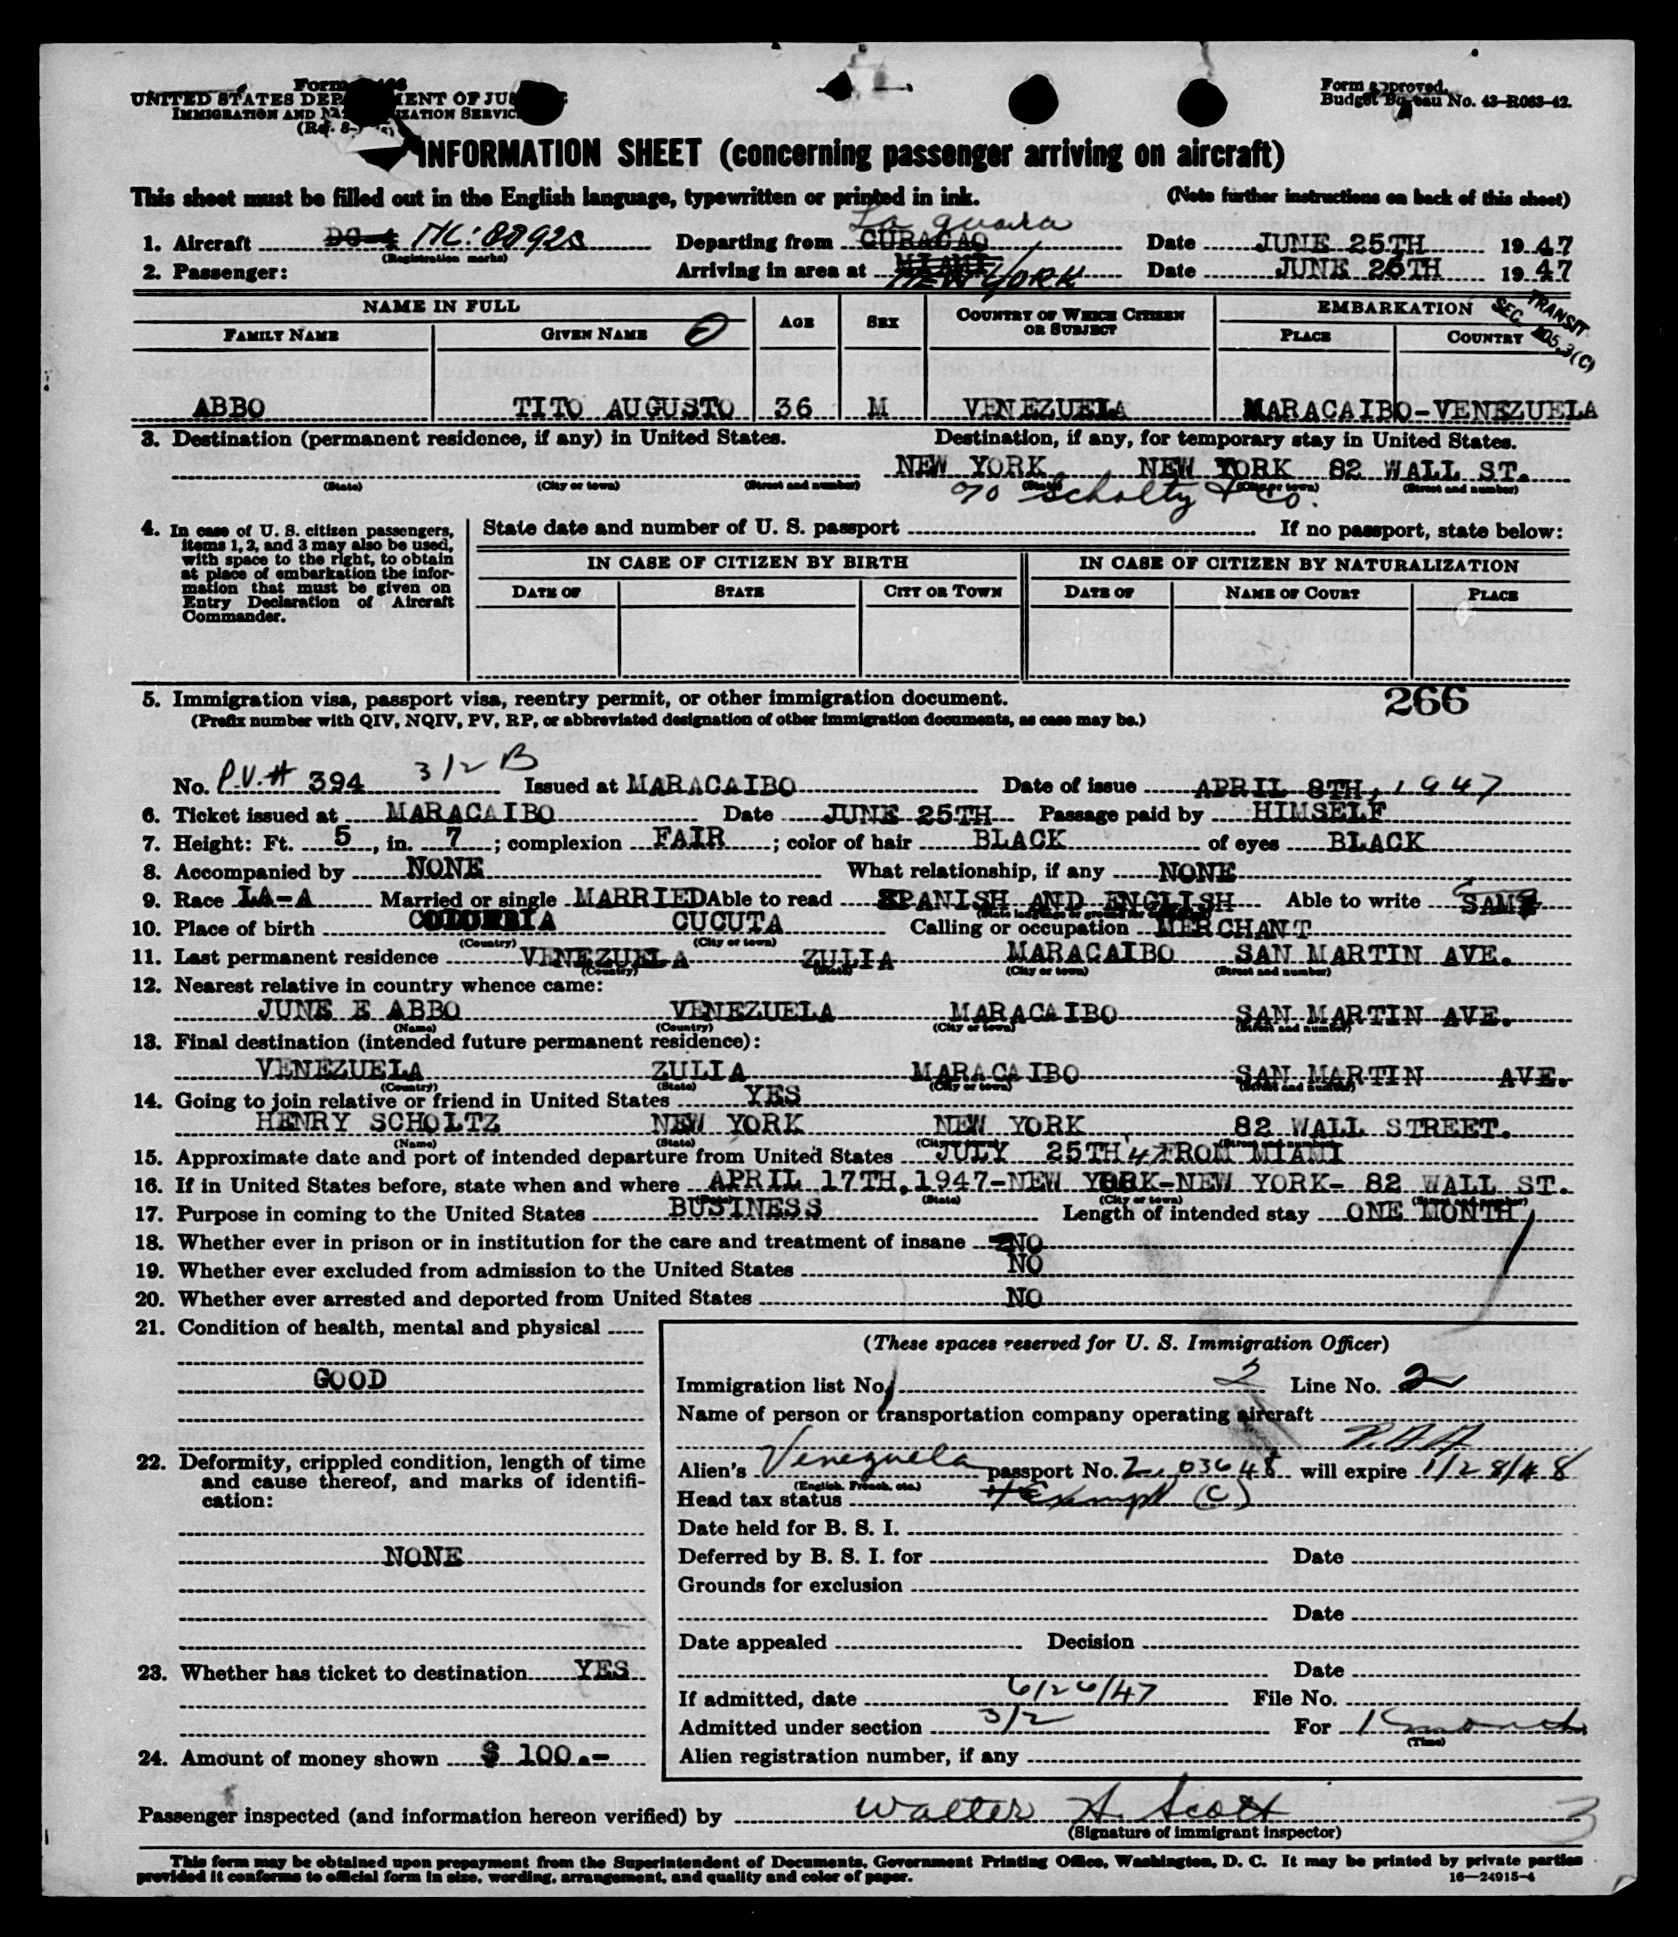 Form
UNITED STATES DEPARTMENT OF JUSTICE
IMMIGRATION AND NATURALIZATION SERVICE
Form approved.
Budget Bureau No. 43-R063-42.
INFORMATION SHEET (concerning passenger arriving on aircraft)
This sheet must be filled out in the English language, typewritten or printed in ink. (Note further instructions on back of this sheet)
La guaira
1. Aircraft DC-4 NC: 88923 Departing from CURACAO Date JUNE 25TH 1947
(Registration marks)
2. Passenger: Arriving in area at MIAMI NEW YORK Date JUNE 26TH 1947
TRANSIT SEC. 105.3(C)
NAME IN FULL AGE SEX COUNTRY OF WHICH CITIZEN OR SUBJECT EMBARKATION
FAMILY NAME GIVEN NAME PLACE COUNTRY
ABBO TITO AUGUSTO 36 M VENEZUELA MARACAIBO-VENEZUELA
3. Destination (permanent residence, if any) in United States. Destination, if any, for temporary stay in United States.
NEW YORK NEW YORK 82 WALL ST.
(State) (City or town) (Street and number) (State) (City or town) (Street and number)
c/o Scholtz & Co.
4. In case of U. S. citizen passengers, items 1, 2, and 3 may also be used, with space to the right, to obtain at place of embarkation the information that must be given on Entry Declaration of Aircraft Commander.
State date and number of U. S. passport If no passport, state below:
IN CASE OF CITIZEN BY BIRTH IN CASE OF CITIZEN BY NATURALIZATION
DATE OF STATE CITY OR TOWN DATE OF NAME OF COURT PLACE
5. Immigration visa, passport visa, reentry permit, or other immigration document. 266
(Prefix number with QIV, NQIV, PV, RP, or abbreviated designation of other immigration documents, as case may be.)
No. P.V.# 394 3/2 B Issued at MARACAIBO Date of issue APRIL 8TH, 1947
6. Ticket issued at MARACAIBO Date JUNE 25TH Passage paid by HIMSELF
7. Height: Ft. 5, in. 7; complexion FAIR; color of hair BLACK of eyes BLACK
8. Accompanied by NONE What relationship, if any NONE
9. Race LA-A Married or single MARRIED Able to read SPANISH AND ENGLISH Able to write SAME
(State language or ground for exemption)
10. Place of birth COLOMBIA CUCUTA Calling or occupation MERCHANT
(Country) (City or town)
11. Last permanent residence VENEZUELA ZULIA MARACAIBO SAN MARTIN AVE.
(Country) (State) (City or town) (Street and number)
12. Nearest relative in country whence came:
JUNE E ABBO VENEZUELA MARACAIBO SAN MARTIN AVE.
(Name) (Country) (City or town) (Street and number)
13. Final destination (intended future permanent residence):
VENEZUELA ZULIA MARACAIBO SAN MARTIN AVE.
(Country) (State) (City or town) (Street and number)
14. Going to join relative or friend in United States YES
HENRY SCHOLTZ NEW YORK NEW YORK 82 WALL STREET.
(Name) (State) (City or town) (Street and number)
15. Approximate date and port of intended departure from United States JULY 25TH '47 FROM MIAMI
16. If in United States before, state when and where APRIL 17TH, 1947-NEW YORK-NEW YORK- 82 WALL ST.
(Date) (State) (City or town) (Street and number)
17. Purpose in coming to the United States BUSINESS Length of intended stay ONE MONTH
18. Whether ever in prison or in institution for the care and treatment of insane NO
19. Whether ever excluded from admission to the United States NO
20. Whether ever arrested and deported from United States NO
21. Condition of health, mental and physical
GOOD
22. Deformity, crippled condition, length of time and cause thereof, and marks of identification:
NONE
23. Whether has ticket to destination YES
24. Amount of money shown $ 100.-
(These spaces reserved for U. S. Immigration Officer)
Immigration list No. 2 Line No. 2
Name of person or transportation company operating aircraft
P.A.A
Alien's Venezuela passport No. 03648 will expire 1/28/48
(English, French, etc.)
Head tax status Exempt (C)
Date held for B. S. I.
Deferred by B. S. I. for Date
Grounds for exclusion
Date
Date appealed Decision
Date
If admitted, date 6/26/47 File No.
Admitted under section 3/2 For 1 month
(Time)
Alien registration number, if any
Passenger inspected (and information hereon verified) by Walter A. Scott 3
(Signature of immigrant inspector)
This form may be obtained upon prepayment from the Superintendent of Documents, Government Printing Office, Washington, D. C. It may be printed by private parties
provided it conforms to official form in size, wording, arrangement, and quality and color of paper. 16—24915-4